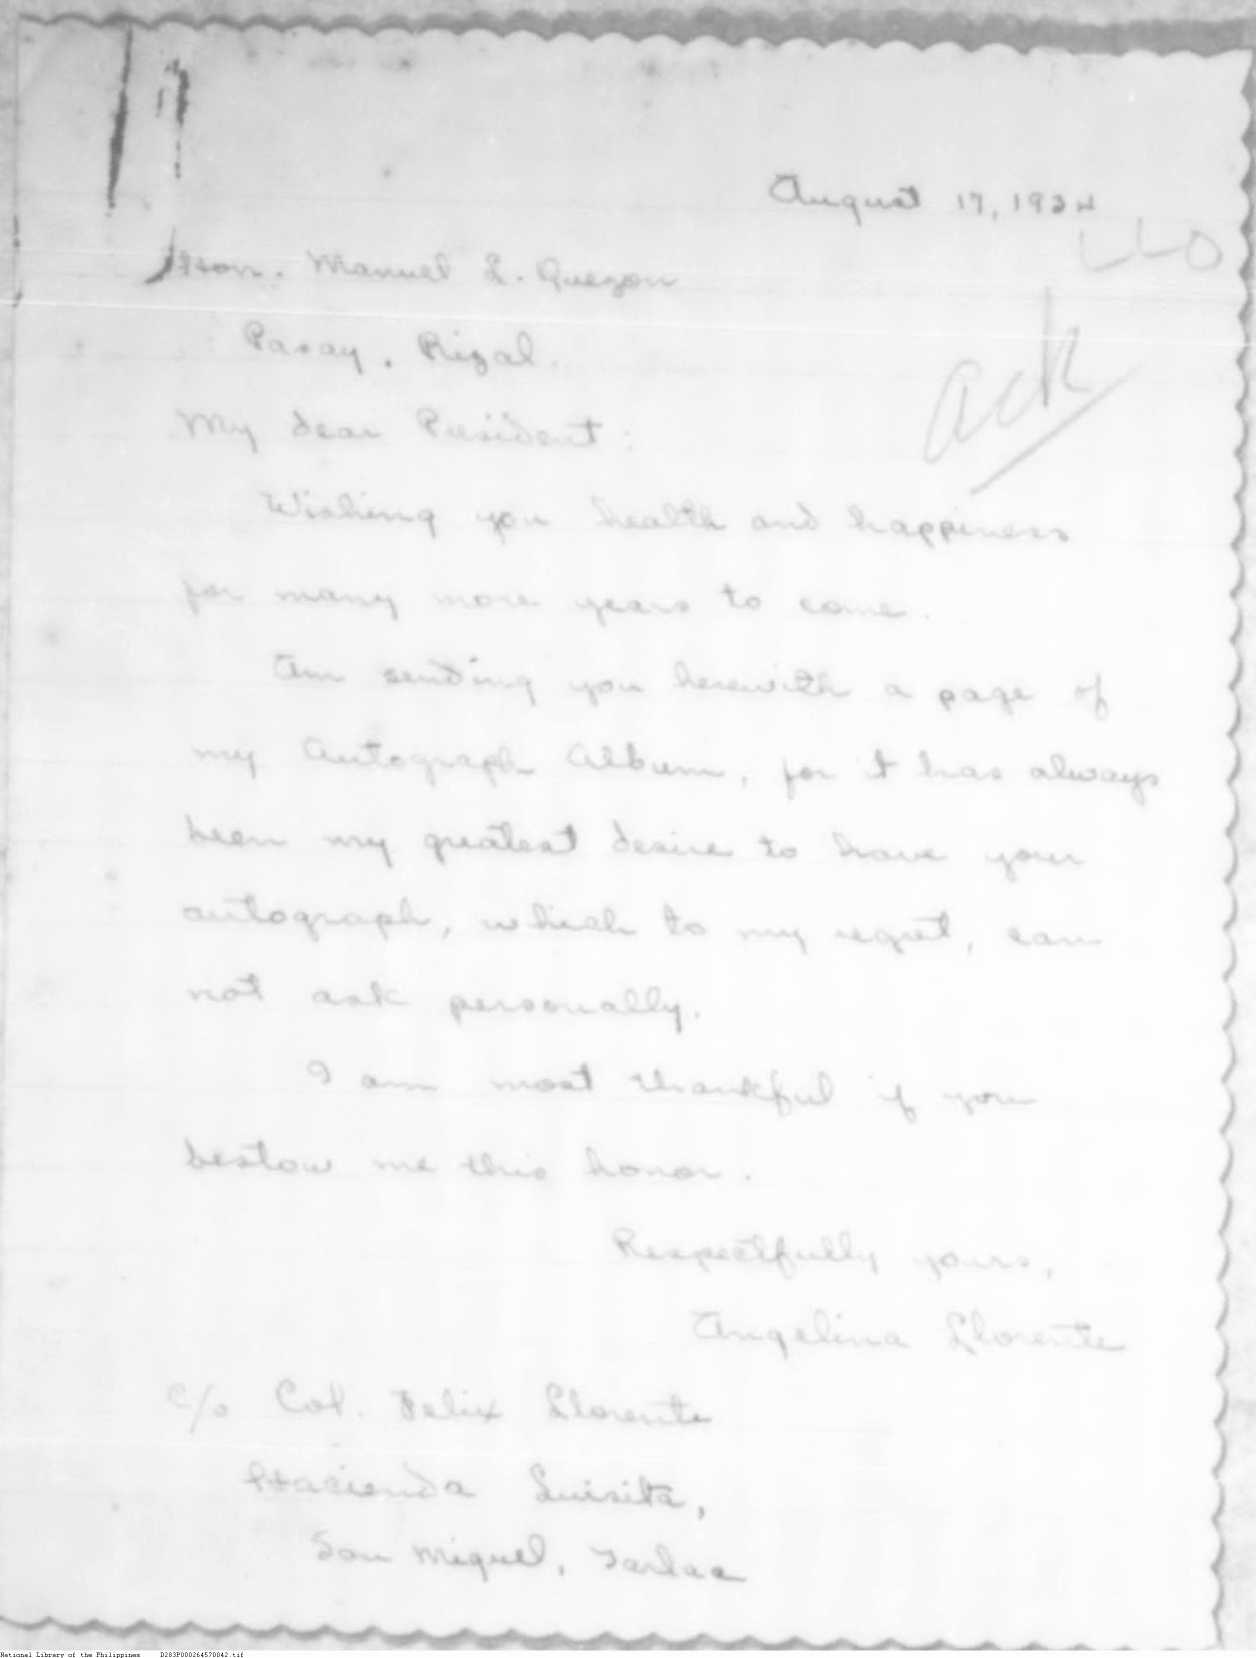 August 17, 1934
LLO
Hon. Manuel L. Quezon
Pasay, Rizal.
ack
My dear President:
Wishing you health and happiness
for many more years to come.
Am sending you herewith a page of
my Autograph Album, for it has always
been my greatest desire to have your
autograph, which to my regret, can
not ask personally.
I am most thankful if you
bestow me this honor.
Respectfully yours,
Angelina Llorente
c/o Col. Felix Llorente
Hacienda Luisita,
San Miguel, Tarlac
National Library of the Philippines D283P000264570042.tif